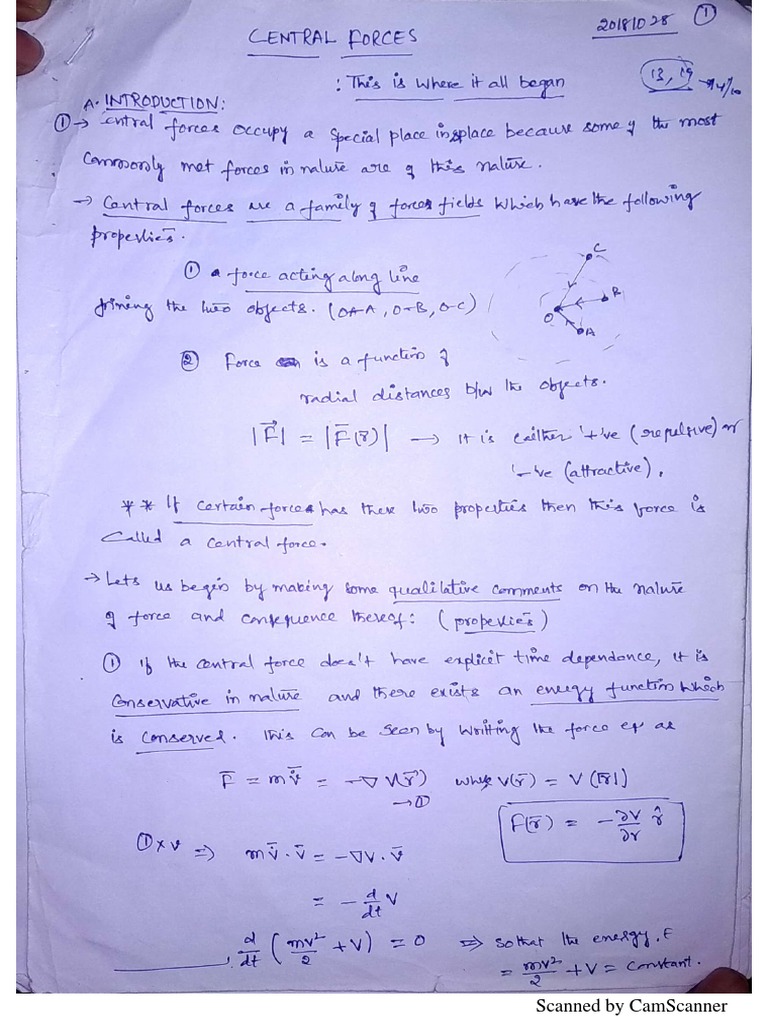 20181028 ①
CENTRAL FORCES
: This is where it all began
13, 19
A. INTRODUCTION:
① → Central forces occupy a special place insplace because some of the most
commonly met forces in nature are of this nature.
→ Central forces are a family of forces fields which have the following
properties.
① a force acting along line
joining the two objects. (O-A, O-B, O-C)
C
B
O
A
② Force is a function of
radial distances b/w the objects.
|F⃗| = |F̄(r̄)| → It is either '+'ve (repulsive) or
'-'ve (attractive).
** If certain forces has these two properties then this force is
called a central force.
→ Lets us begin by making some qualitative comments on the nature
of force and consequence thereof: (properties)
① if the central force does't have explicit time dependance, it is
conservative in nature and there exists an energy function which
is conserved. This can be seen by writting the force eq as
F̄ = m v̄̇ = -∇ V(r̄) where V(r̄) = V(|r̄|)
→ ①
F(r̄) = -∂V/∂r r̂
① x v ⇒ m v̄̇ . v̄ = -∇V . v̄
= - d/dt V
d/dt (mv²/2 + V) = 0 ⇒ so that the energy, E
= mv²/2 + V = constant.
Scanned by CamScanner